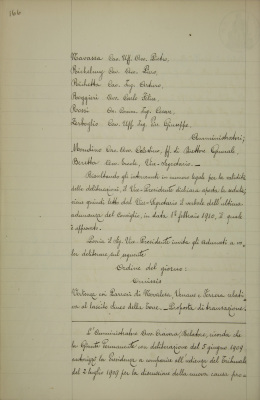 166
Navassa Cav. Uff. Avv. Pietro,
Richelmy Cav. Avv. Piero,
Richetta Cav. Ing. Arturo,
Ruggieri Avv. Carlo Felice,
Rossi Cav. Ing. Cesare,
Cav. Uff. Ing. Giuseppe.
Amministratori;
Mondino Cav. Avv. Celestino, ff. di Direttore Generale.
Beretta Cav. Ercole, Vice-Segretario. —
Risultando gli intervenuti in numero legale per la validità
delle deliberazioni, il Vice-Presidente dichiara aperta la seduta;
viene quindi letto dal Vice-Segretario il verbale dell'ultima
adunanza del Consiglio, in data 1° febbraio 1910, il quale
è approvato.
il Sig. Vice Presidente invita gli adunati a vo-
ler deliberare sul seguente
Ordine del giorno:
Omissis
Vertenza coi Parroci di Novalesa, Venaus e Ferrera relati-
va al Proposta di transazione.
L'Amministratore Avv. ricorda che
la Giunta Permanente con deliberazione del 5 giugno 1909
autorizzò la Presidenza a comparire all'udienza del Tribunale
del 2 luglio 1909 per la discussione della nuova causa pro-